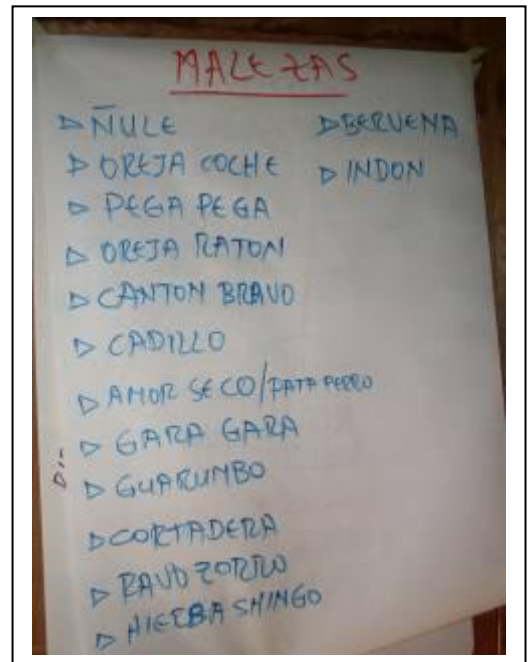 MALEZAS
▷ ÑULE
▷ OREJA COCHE
▷ PEGA PEGA
▷ OREJA RATON
▷ CANTON BRAVO
▷ CADILLO
▷ AMOR SECO/PATA PERRO
▷ GARA GARA
▷ GUARUMBO
▷ CORTADERA
▷ RAVO ZORRO
▷ HIERBA SHINGO
▷ BERVENA
▷ INDON